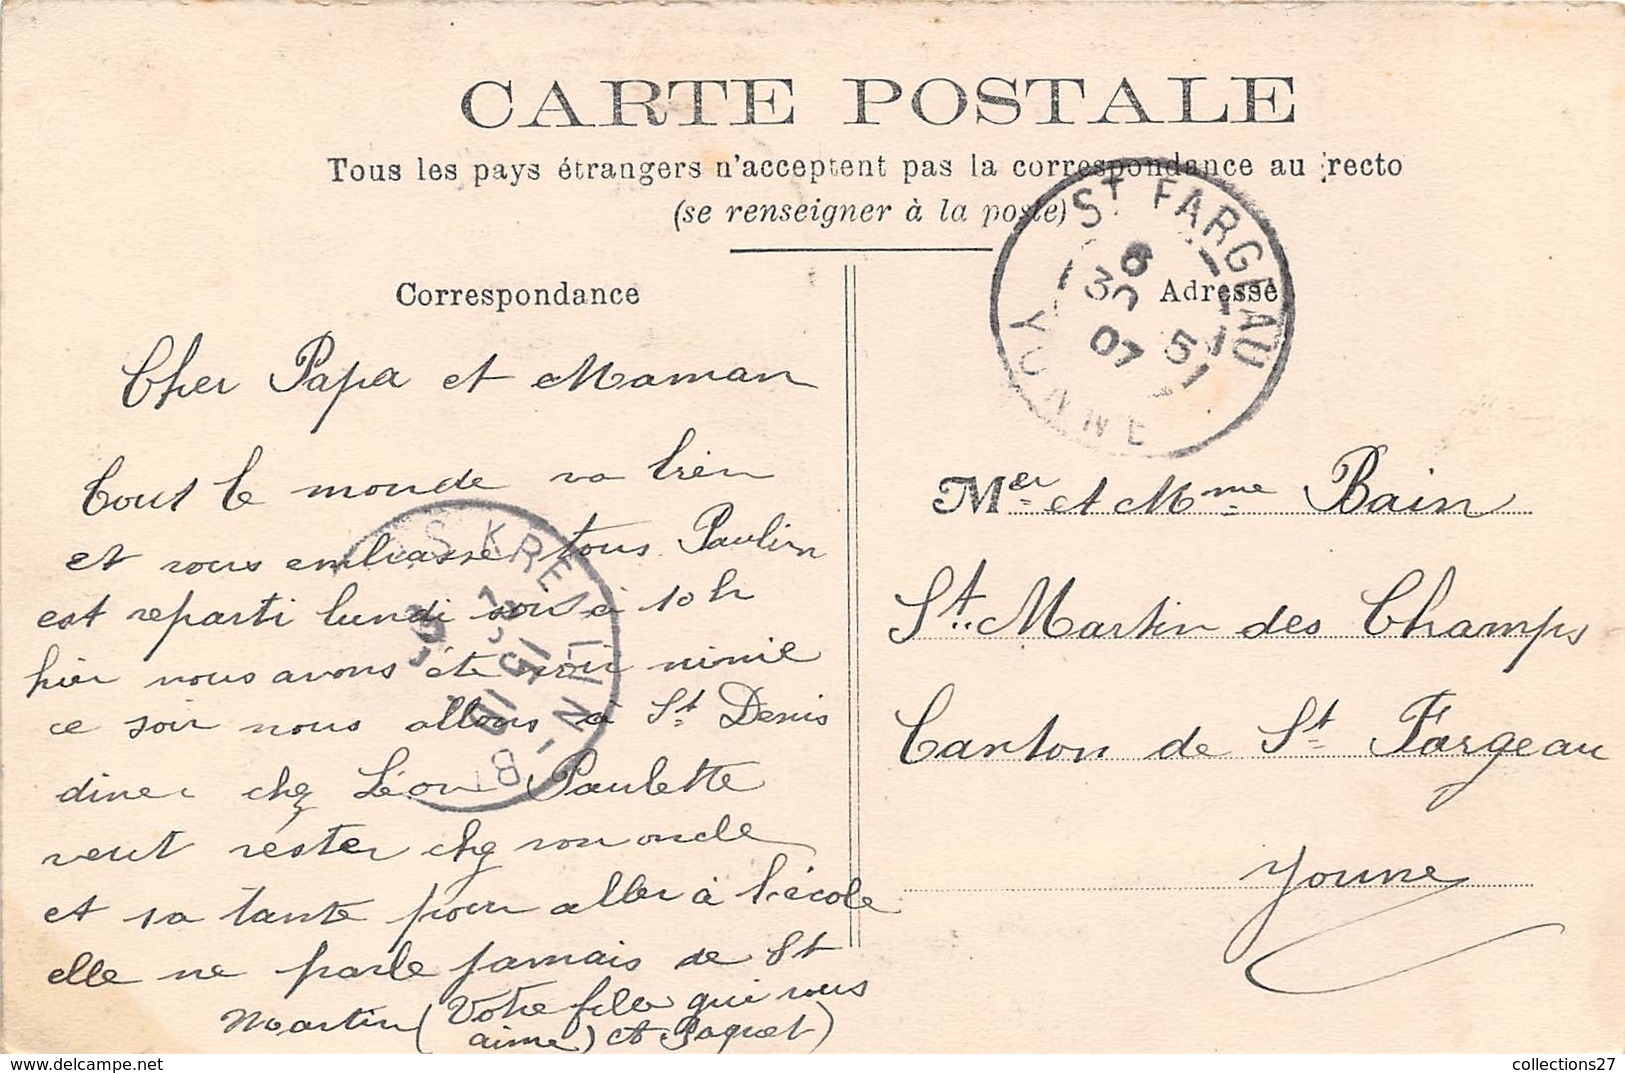 CARTE POSTALE
Tous les pays étrangers n'acceptent pas la correspondance au recto
(se renseigner à la poste)
Correspondance
Cher Papa et Maman
Tout le monde va bien
et vous embrasse tous Paulin
est reparti lundi soir à 10 h
hier nous avons été voir ninie
ce soir nous allons à St Denis
diner chez Léon Paulette
veut rester chez son oncle
et sa tante pour aller à l'école
elle ne parle jamais de St
Martin (Votre fille qui vous
aime) et Paquet)
Adresse
Mer et Mme Bain
St Martin des Champs
Canton de St Fargeau
Yonne
ST FARGEAU
6
30 5
07
YONNE
KREMLIN-B
collections27